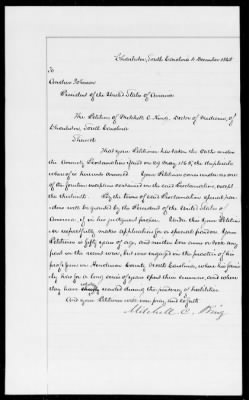 Charleston, South Carolina 4 December 1865
To
Andrew Johnson
President of the United States of America
The Petition of Mitchell C. King, Doctor of Medicine, of
Charleston, South Carolina
Sheweth
That your Petitioner has taken the Oath under
the Amnesty Proclamation of 29 May 1865, the duplicate
whereof is hereunto annexed. Your Petitioner comes under no one
of the fourteen exceptions contained in the said Proclamation, except
the thirteenth. By the terms of said Proclamation special par-
dons will be granted by the President of the United States of
America, if in his judgment proper. Under this Your Petition-
er respectfully makes application for a special pardon. Your
Petitioner is fifty years of age, and neither bore arms or took any
part in the recent war, but was engaged in the practice of his
profession in Henderson County North Carolina, where his fami-
ly has for a long series of years spent their summers, and where
they have resided during the pendency of hostilities.
And your Petitioner will ever pray, and so forth
Mitchell C. King